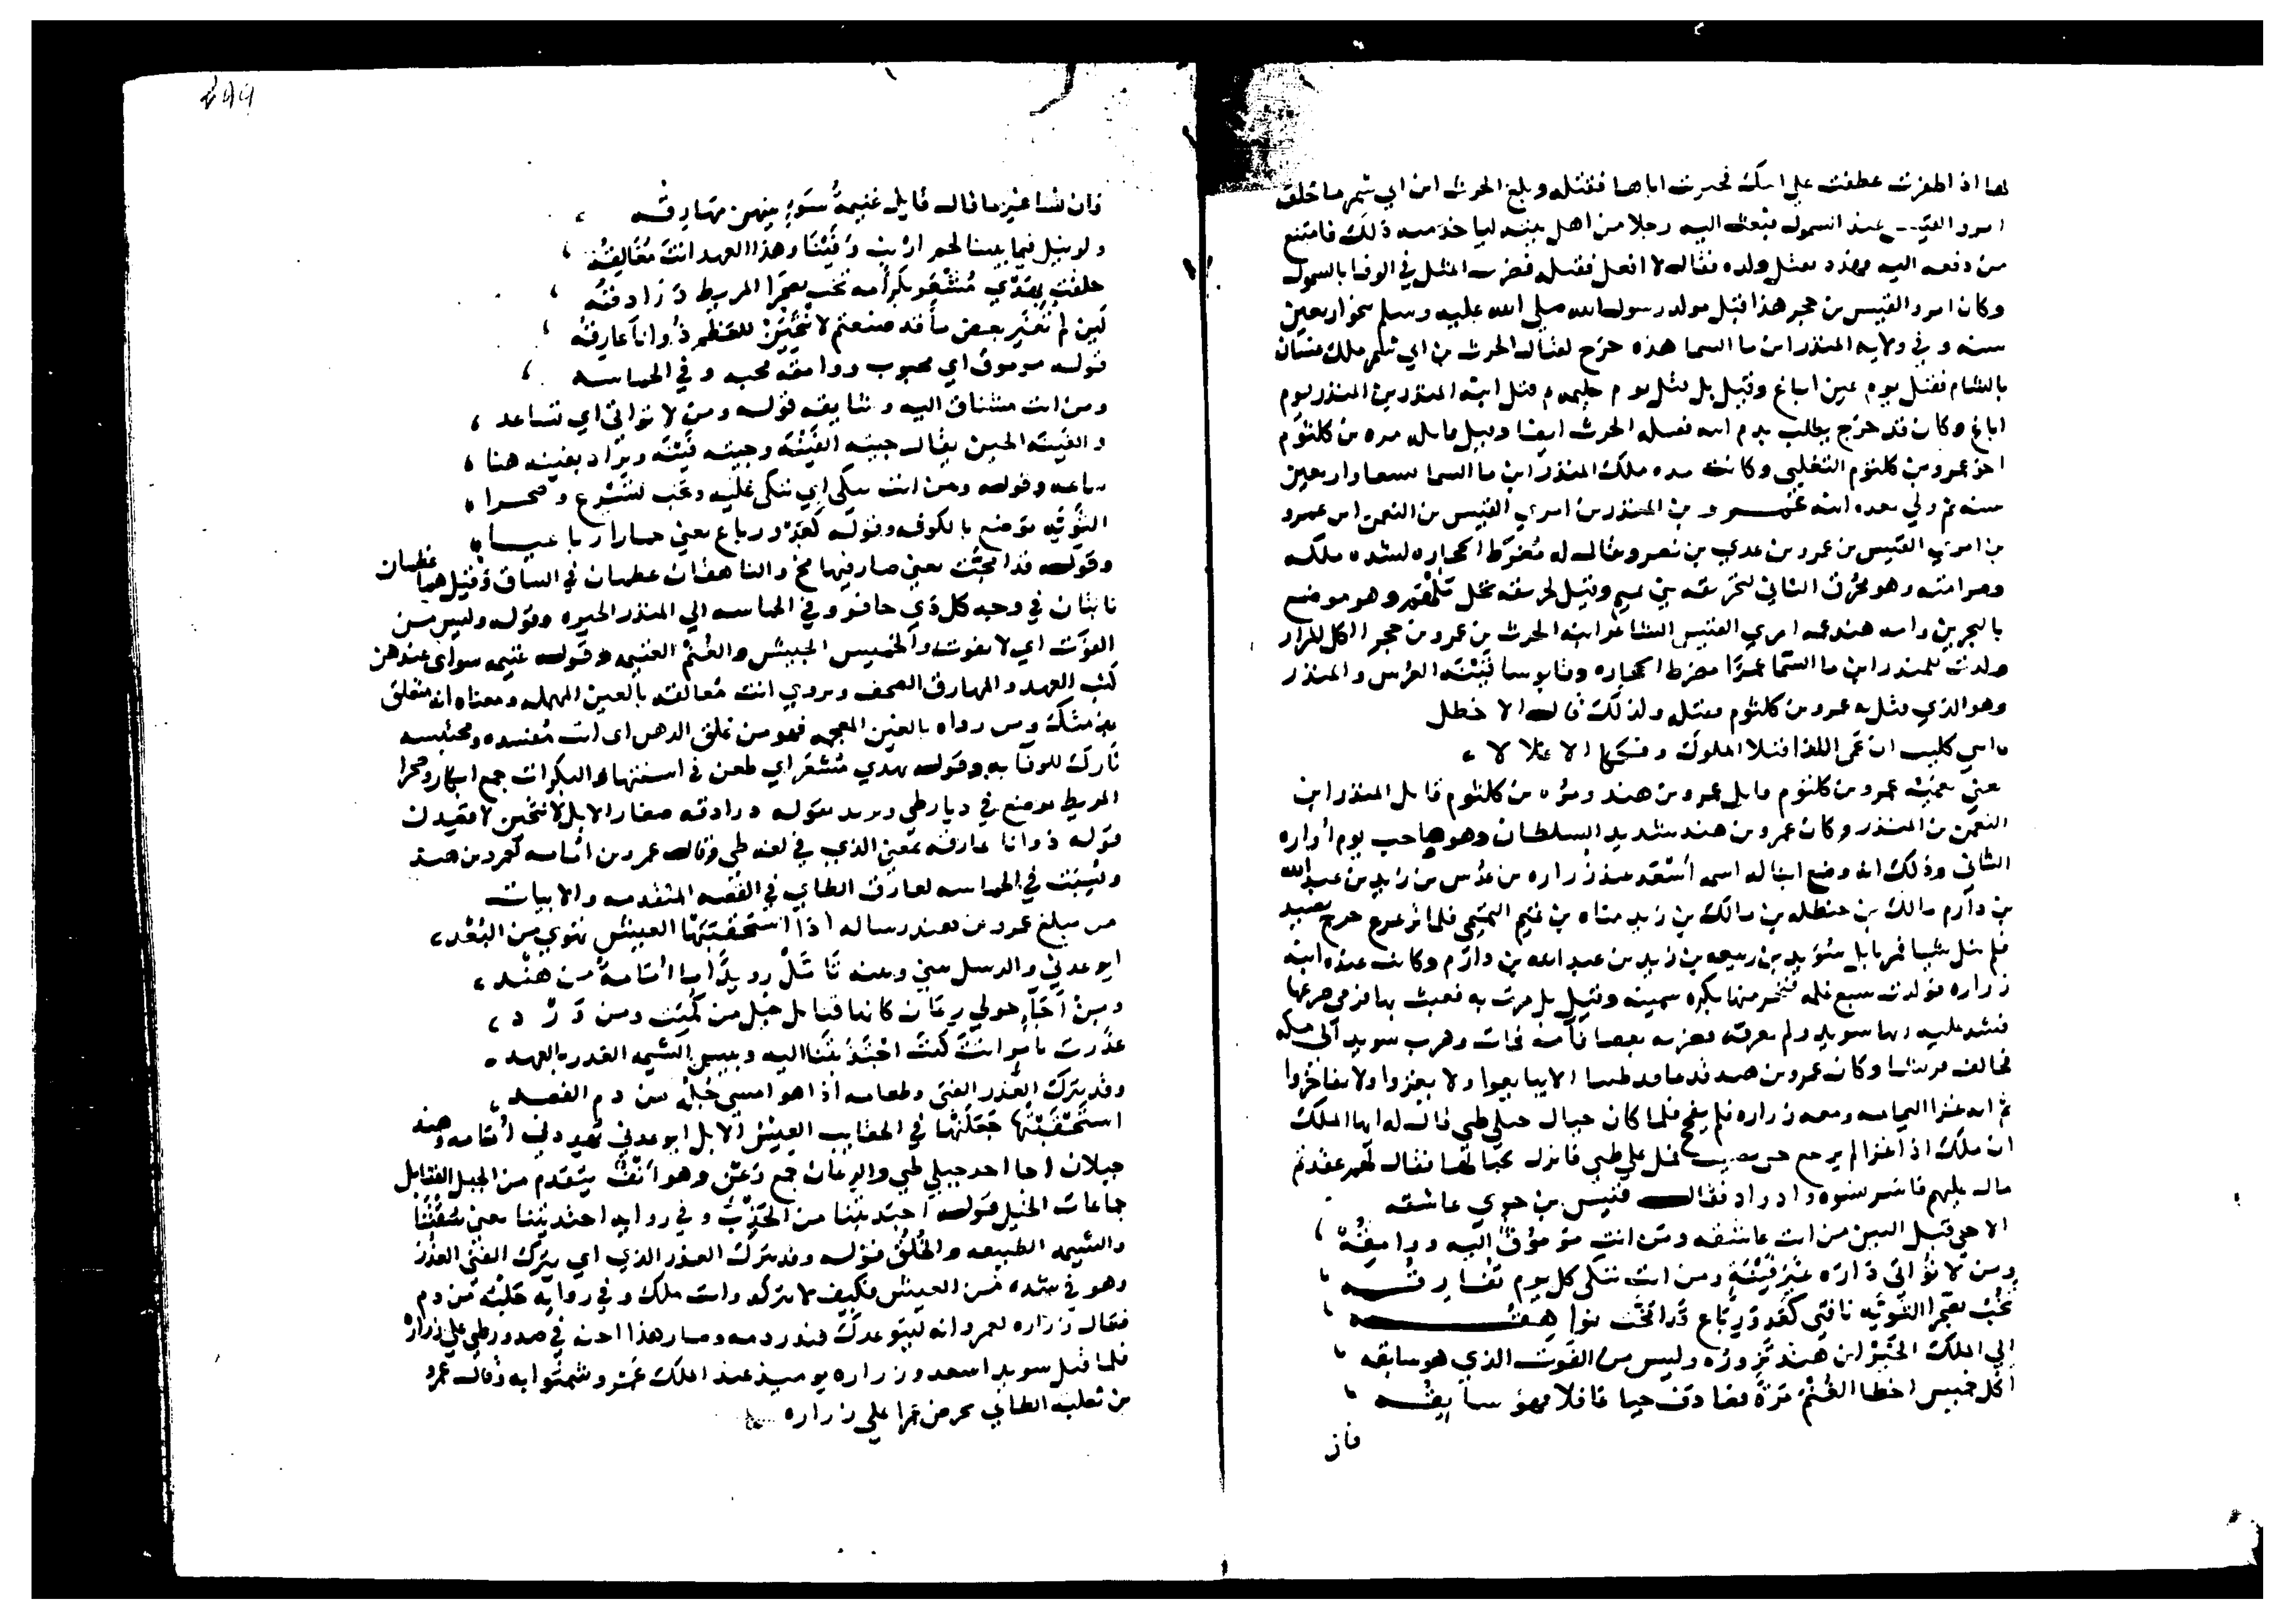 لها اذ اطعزت عطفت على اسك فخبرت اباها فقتله وبلغ الحرث ابن ابي شمر ما خلف
امرو القيس عند السمول فبعث اليه رجلا من اهل بيته لياخذ منه ذلك فامتنع
من دفعه اليه فهدد بقتل ولده فقال لا افعل فقتله فضرب المثل في الوفا بالسمول
وكان امرو القيس بن حجر هذا قبل مولد رسول الله صلى الله عليه وسلم بنحو اربعين
سنه وفي ولايه المنذر ابن ما السما هذه خرج لقتال الحرث بن ابي شمر ملك غسان
بالشام فقتل يوم عين اباغ وقيل بل قتل يوم حليمه وقتل ابنه المنذر بن المنذر يوم
اباغ وكان قد خرج يطلب بدم ابيه فقتله الحرث ايضا وقيل قاتله مره بن كلثوم
اخو عمرو بن كلثوم التغلبي وكانت مده ملك المنذر ابن ما السما تسعا واربعين
سنه ثم ولي بعده ابنه عمرو بن المنذر بن امري القيس بن النعمن ابن عمرو
بن امري القيس بن عمرو بن عدي بن نصر ويقال له مُضَرِّط الحجاره لشده ملكه
وصرامته وهو محرق الثاني لتحريقه بني تميم وقيل لحريقه نخل مَلْهَم وهو موضع
بالبحرين وامه هند عمه امري القيس الشاعر ابنه الحرث بن عمرو بن حجر اكل المرار
ولدت للمنذر ابن ما السَّما عَمرًا مضرط الحجاره وقابوسا قَيْنَه العرس والمنذر
وهو الذي مثل به عمرو بن كلثوم فقتله ولذلك قال الاخطل
ابني كليب ان عَمَّى اللذا قتلا الملوك وفككا الاغلالا ،
يعني بعَمَّيْه عمرو بن كلثوم قاتل عمرو بن هند ومُرّه بن كلثوم قاتل المنذر ابن
النعمن بن المنذر وكان عمرو بن هند شديد السلطان وهو صاحب يوم أُواره
الثاني وذلك انه وضع ابنا له اسمه أَسْعَد عند زراره بن عُدُس بن زيد بن عبد الله
بن دارم مالك بن حنظله بن مالك بن زيد مناه بن تميم التميمي فلما ترعرع خرج يصيد
فلم ينل شيا فمر بابل سُوَيد بن ربيعه بن زيد بن عبد الله بن دارم وكانت عنده ابنه
زراره فولدت سبع غلمه فنحر منها بكره سمينه وقيل بل مرت به فعبث بها فرمى ضرعها
فشد عليه ربها سويد ولم يعرفه فضربه بعصا فأمه فمات وهرب سويد الى مكه
فحالف قريشا وكان عمرو بن هند قد عاقد طيبا الا يبايعوا ولا يغزوا ولا يفاخروا
ثم انه غزا اليمامه ومعه زراره فلم ينجح فلما كان حيال جبلي طي قال له ايها الملك
ان ملك اذا غزا لم يرجع حتى يصيب فمل على طي فانزل بحيالها فقال لهم عقد ثم
مال عليهم فاسر نسوه واذواد فقال قيس بن جروي عاشقه
الا حي قبل البين من انت عاشقه ومن انت مَوْمُوْقٌ اليه ووامِقُهْ ،
ومن لا تُوَاتى دَارُه غَيْرَ فَيْنَةٍ ومن انت تبكى كل يوم تُفَارِقُه ،
تَخُبُّ بصحرا الثَّوِيَّه ناقتي كَعَدْوِ رَبَاعٍ قَدْ امَخَّت نواهِقُه ،
الى الملك الخَيْر ابن هندٍ تَزورُه وليس من الفَوْت الذي هو سابقه ،
اكل خميس اخطا الغُنْمُ مَرّةً فصادف حيا غافلا فهوَ سايِقُه ،
فان
فان نسا غير ما قال قايل غنيمةُ سَوْءٍ بينهن مهارِقُه ،
ولو نيل فيما بيننا لحم ارنب وَفَيْنَا وهذا العهد انتَ مُغَالِقُه ،
حلفتُ بِهَدْيٍ مُشْعَرٍ بَكَراته تخب بصحرا الغربيط دَرَادقُهُ ،
لَين لم تُغَيِّر بعض ما قد صنعتم لانْتَحِيَنْ للعظم ذُو انا عارِقُهُ ،
قوله موموق اي محبوب ووامقه محبه وفي الحماسه ،
ومن انت مشتاق اليه وشايقه قوله ومن لا تواتي اي تساعد ،
والفَينه الحين يقال جيته الفَيْنَه وجيته فَيْنَه ويراد بفينه هنا ،
ساعه وقوله ومن انت تبكي اي تبكى عليه وتخب تسرع وصحرا ،
الثَّوِيَّه موضع بالكوفه وقوله كعَدْو رباع يعني حمارا رباعيا ،
وقوله قد امخَّت يعني صار فيها مخ والناهقان عظمان في الساق وقيل هما عظمان
نابتان في وجه كل ذي حافر وفي الحماسه الى المنذر الخيره وقوله وليس من
الفَوْت اي لا يفوت والخميس الجيش والغُنْم الغنيمه وقوله غنيمه سواي عندهن
كتب العهد والمهارق الصحف ويروي انت مُعالقه بالعين المهمله ومعناه انه متعلق
بذمتك ومن رواه بالغين المعجمه فهو من غلق الرهن اي انت مُفسده ومحتبسه
تارك للوفا به وقوله بهدي مُشْعَر اي طعن في اسنمتها والبكرات جمع ابكار وصحرا
الغربيط موضع في ديار طي ويريد بقوله درادقه صغار الابل لانتحين لاقصدن
قوله ذو انا عارقه بمعنى الذي في لغه طي وقال عمرو بن اثامه لعمرو بن هند
ونُسِبَت في الحماسه لعارق الطاي في القصه المتقدمه والابيات
من مبلغ عمرو بن هند رساله اذا استَحْقَبَتْهَا العيسُ تهوي من البُعْد ،
ايوعدني والرمل بيني وبينه تَأمَّلْ رويدًا ما أُمَامَةُ من هند ،
ومِنْ اَجَأٍ حولي رِعَان كانها قنابل خيل من كُمَيْت ومن وَرْدِ ،
غَدَرتَ بامرٍ انتَ كنتَ اجْتَذَبْتَنَا اليه وبيس الشيمه الغدر بالعهد ،
وقد يترك الغَدْر الفتى وطعامه اذا هو امسى جُلُّهُ من دم الفصد ،
استَحْقَبَتْها جَعَلَتْها في الحقايب العيسُ الابل ايوعدني تهددني أُمامه وهند
جبلان اجا احد جبلي طي والرعان جمع رَعْن وهو أنْفٌ يتقدم من الجبل القنابل
جماعات الخيل قوله اجتذبتنا من الجَذْبَ وفي روايه احتديتنا يعني سُقْتَنَا
والشيمه الطبيعه والخُلُقُ قوله وقد يترك الغدر الذي اي يترك الفتى الغدر
وهو في شده من العيش فكيف لا تتركه وانت ملك وفي روايه حَلْبَه من دم
فقال زراره لعمرو انه ليتوعدك فنذر دمه وصار هذا احن في صدور طي على زراره
فلما قتل سويد اسعد وزراره يوميذ عند الملك عَمرو شمتوا به وقال عمرو
بن ثعلب الطاي يحرض عَمرا على زراره